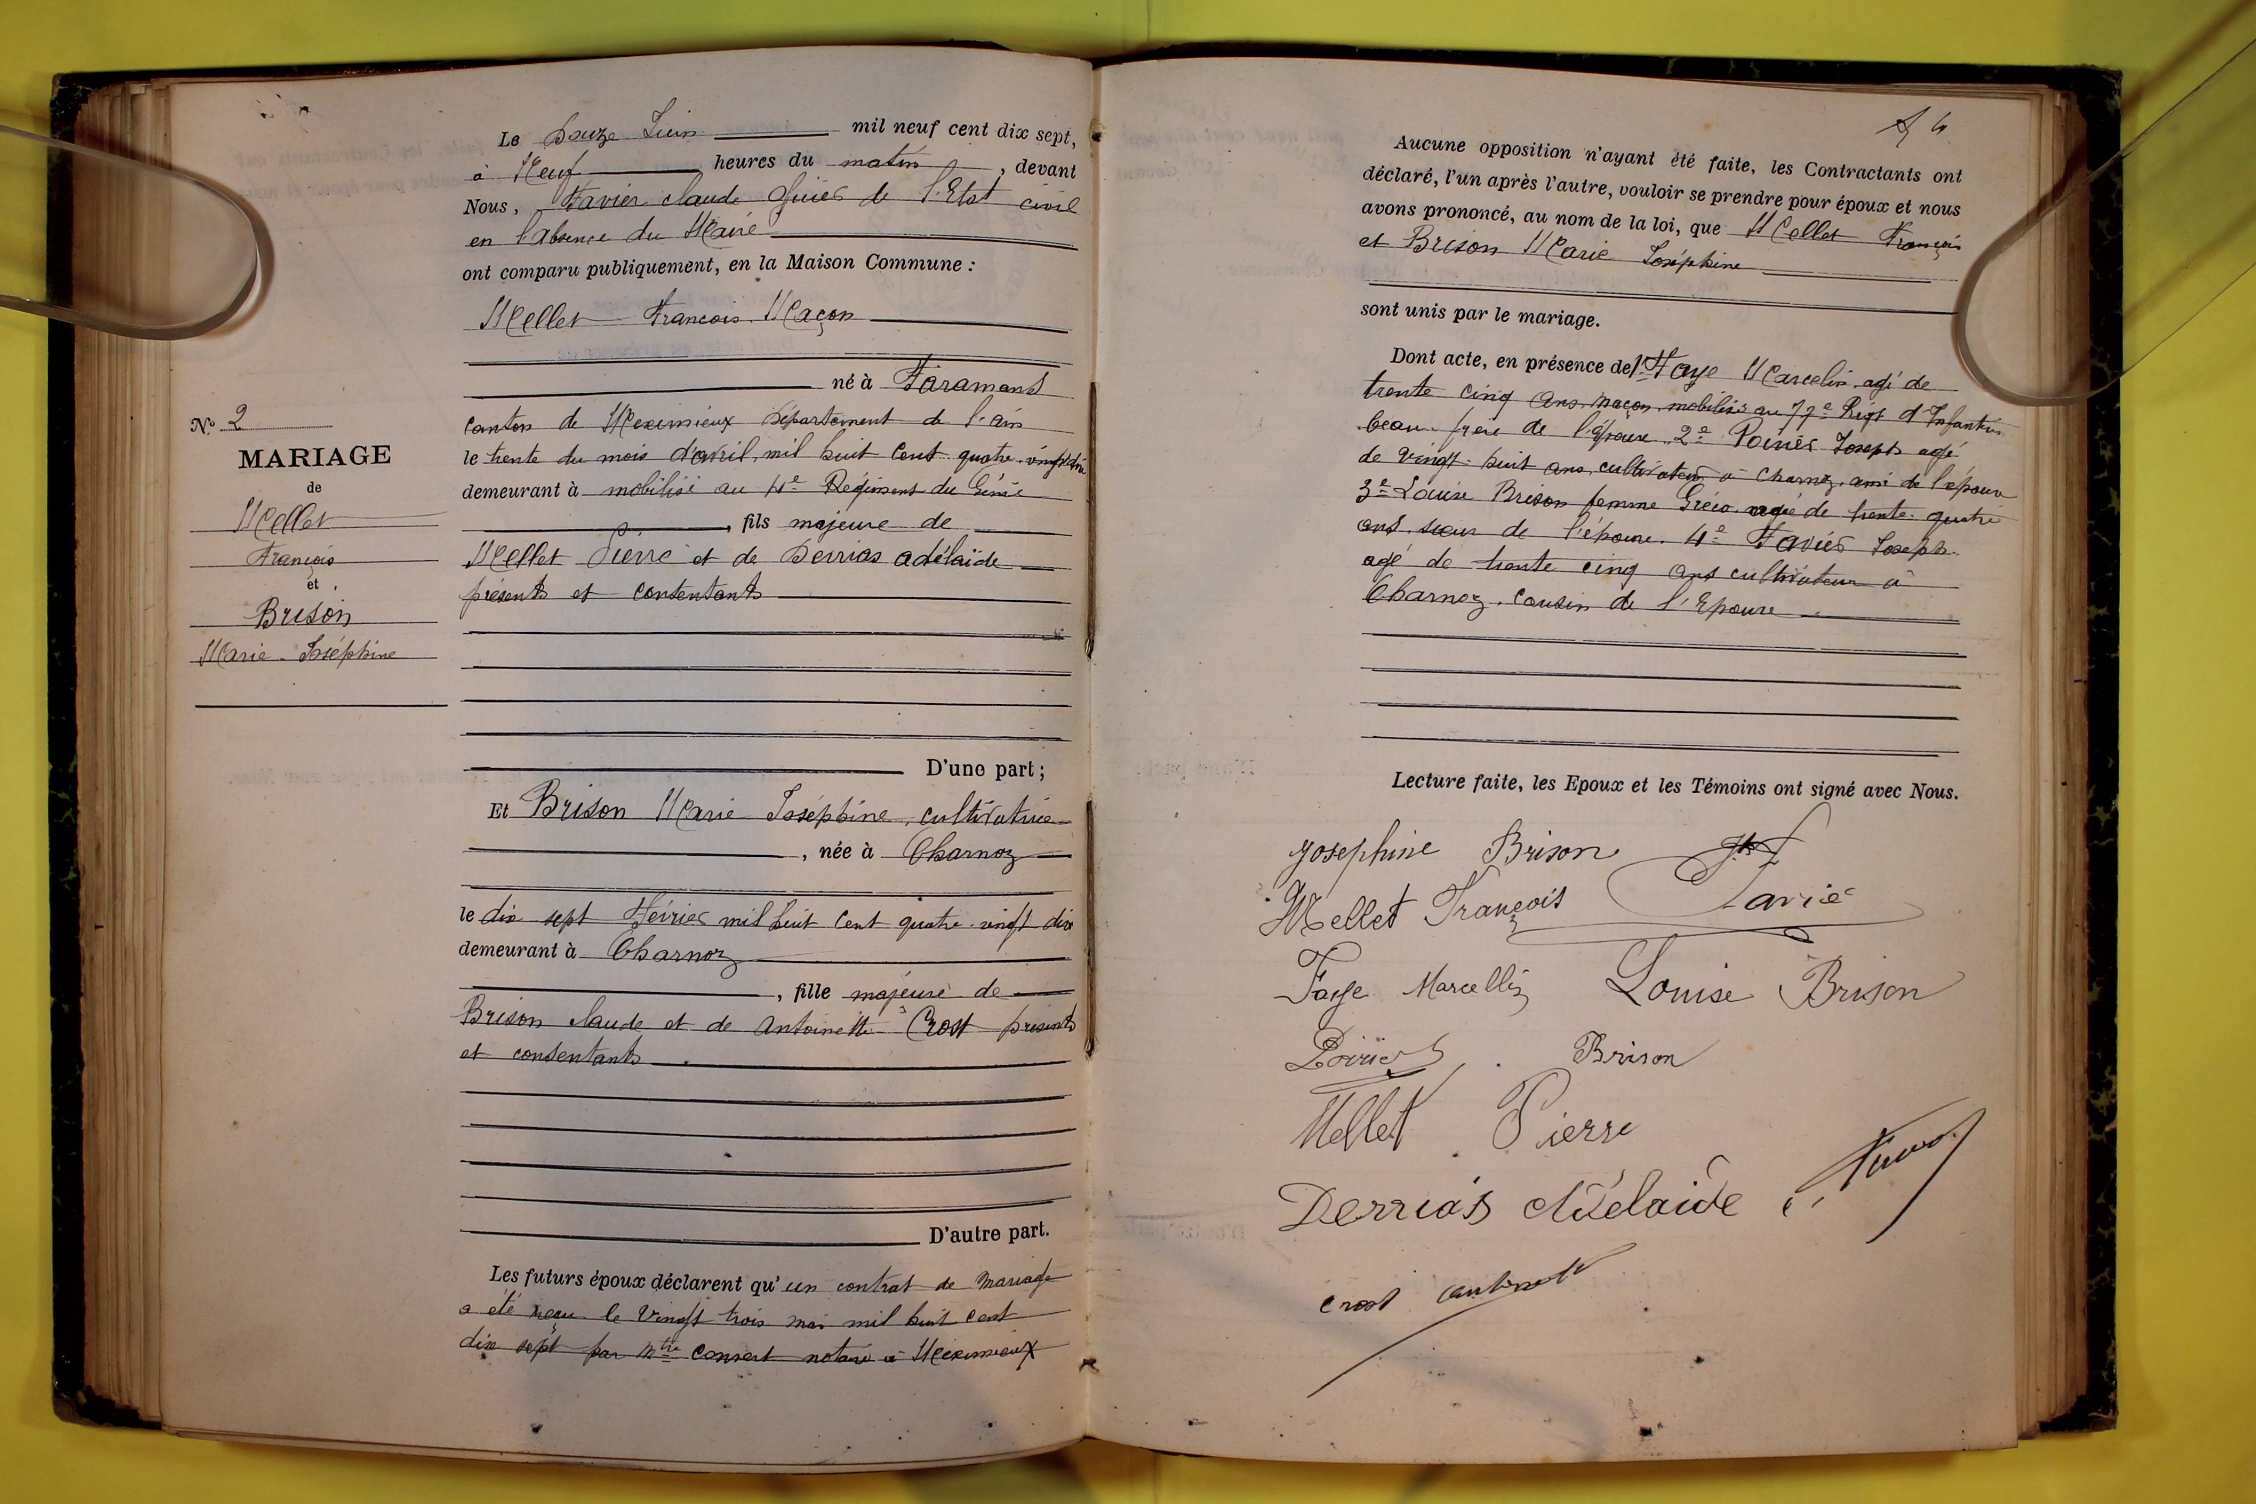 Le Douze Juin mil neuf cent dix sept,
à Neuf heures du matin, devant
Nous, Favier Claude officier de l'Etat civil
en l'absence du Maire
ont comparu publiquement, en la Maison Commune :
Mellet François Maçon
né à Faramans
canton de Meximieux Département de l'ain
le trente du mois d'avril, mil huit cent quatre-vingt
demeurant à mobilisé au 4e Régiment du Génie
, fils majeure de
Mellet Pierre et de Derrias adélaïde
présents et consentants
No 2
MARIAGE
de
Mellet
François
et
Brison
Marie-Joséphine
D'une part ;
Et Brison Marie Joséphine, cultivatrice
, née à Charnoz
le dix sept Février mil huit cent quatre-vingt dix
demeurant à Charnoz
, fille majeure de
Brison Claude et de Antoinette Crost présents
et consentants.
D'autre part.
Les futurs époux déclarent qu'un contrat de mariage
a été reçu le vingt trois mai mil huit cent
dix sept par Mtre Convert notaire à Meximieux
Aucune opposition n'ayant été faite, les Contractants ont
déclaré, l'un après l'autre, vouloir se prendre pour époux et nous
avons prononcé, au nom de la loi, que Mellet François
et Brison Marie Joséphine
sont unis par le mariage.
Dont acte, en présence de 1º Faye Marcelin, agé de
trente cinq ans, maçon, mobilisé au 77e Régt d'Infanterie
beau-frère de l'épouse 2e Poirier Joseph agé
de vingt-huit ans, cultivateur à Charnoz, ami de l'épouse
3e Louise Brison femme agée de trente-quatre
ans, sœur de l'épouse. 4e Favier Joseph.
agé de trente cinq ans cultivateur à
Charnoz. cousin de l'Epouse
Lecture faite, les Epoux et les Témoins ont signé avec Nous.
Josephine Brison
Mellet François Favier
Faye Marcellin Louise Brison
Poirier Brison
Mellet Pierre
Derrias Adélaïde
Crost Antoinette